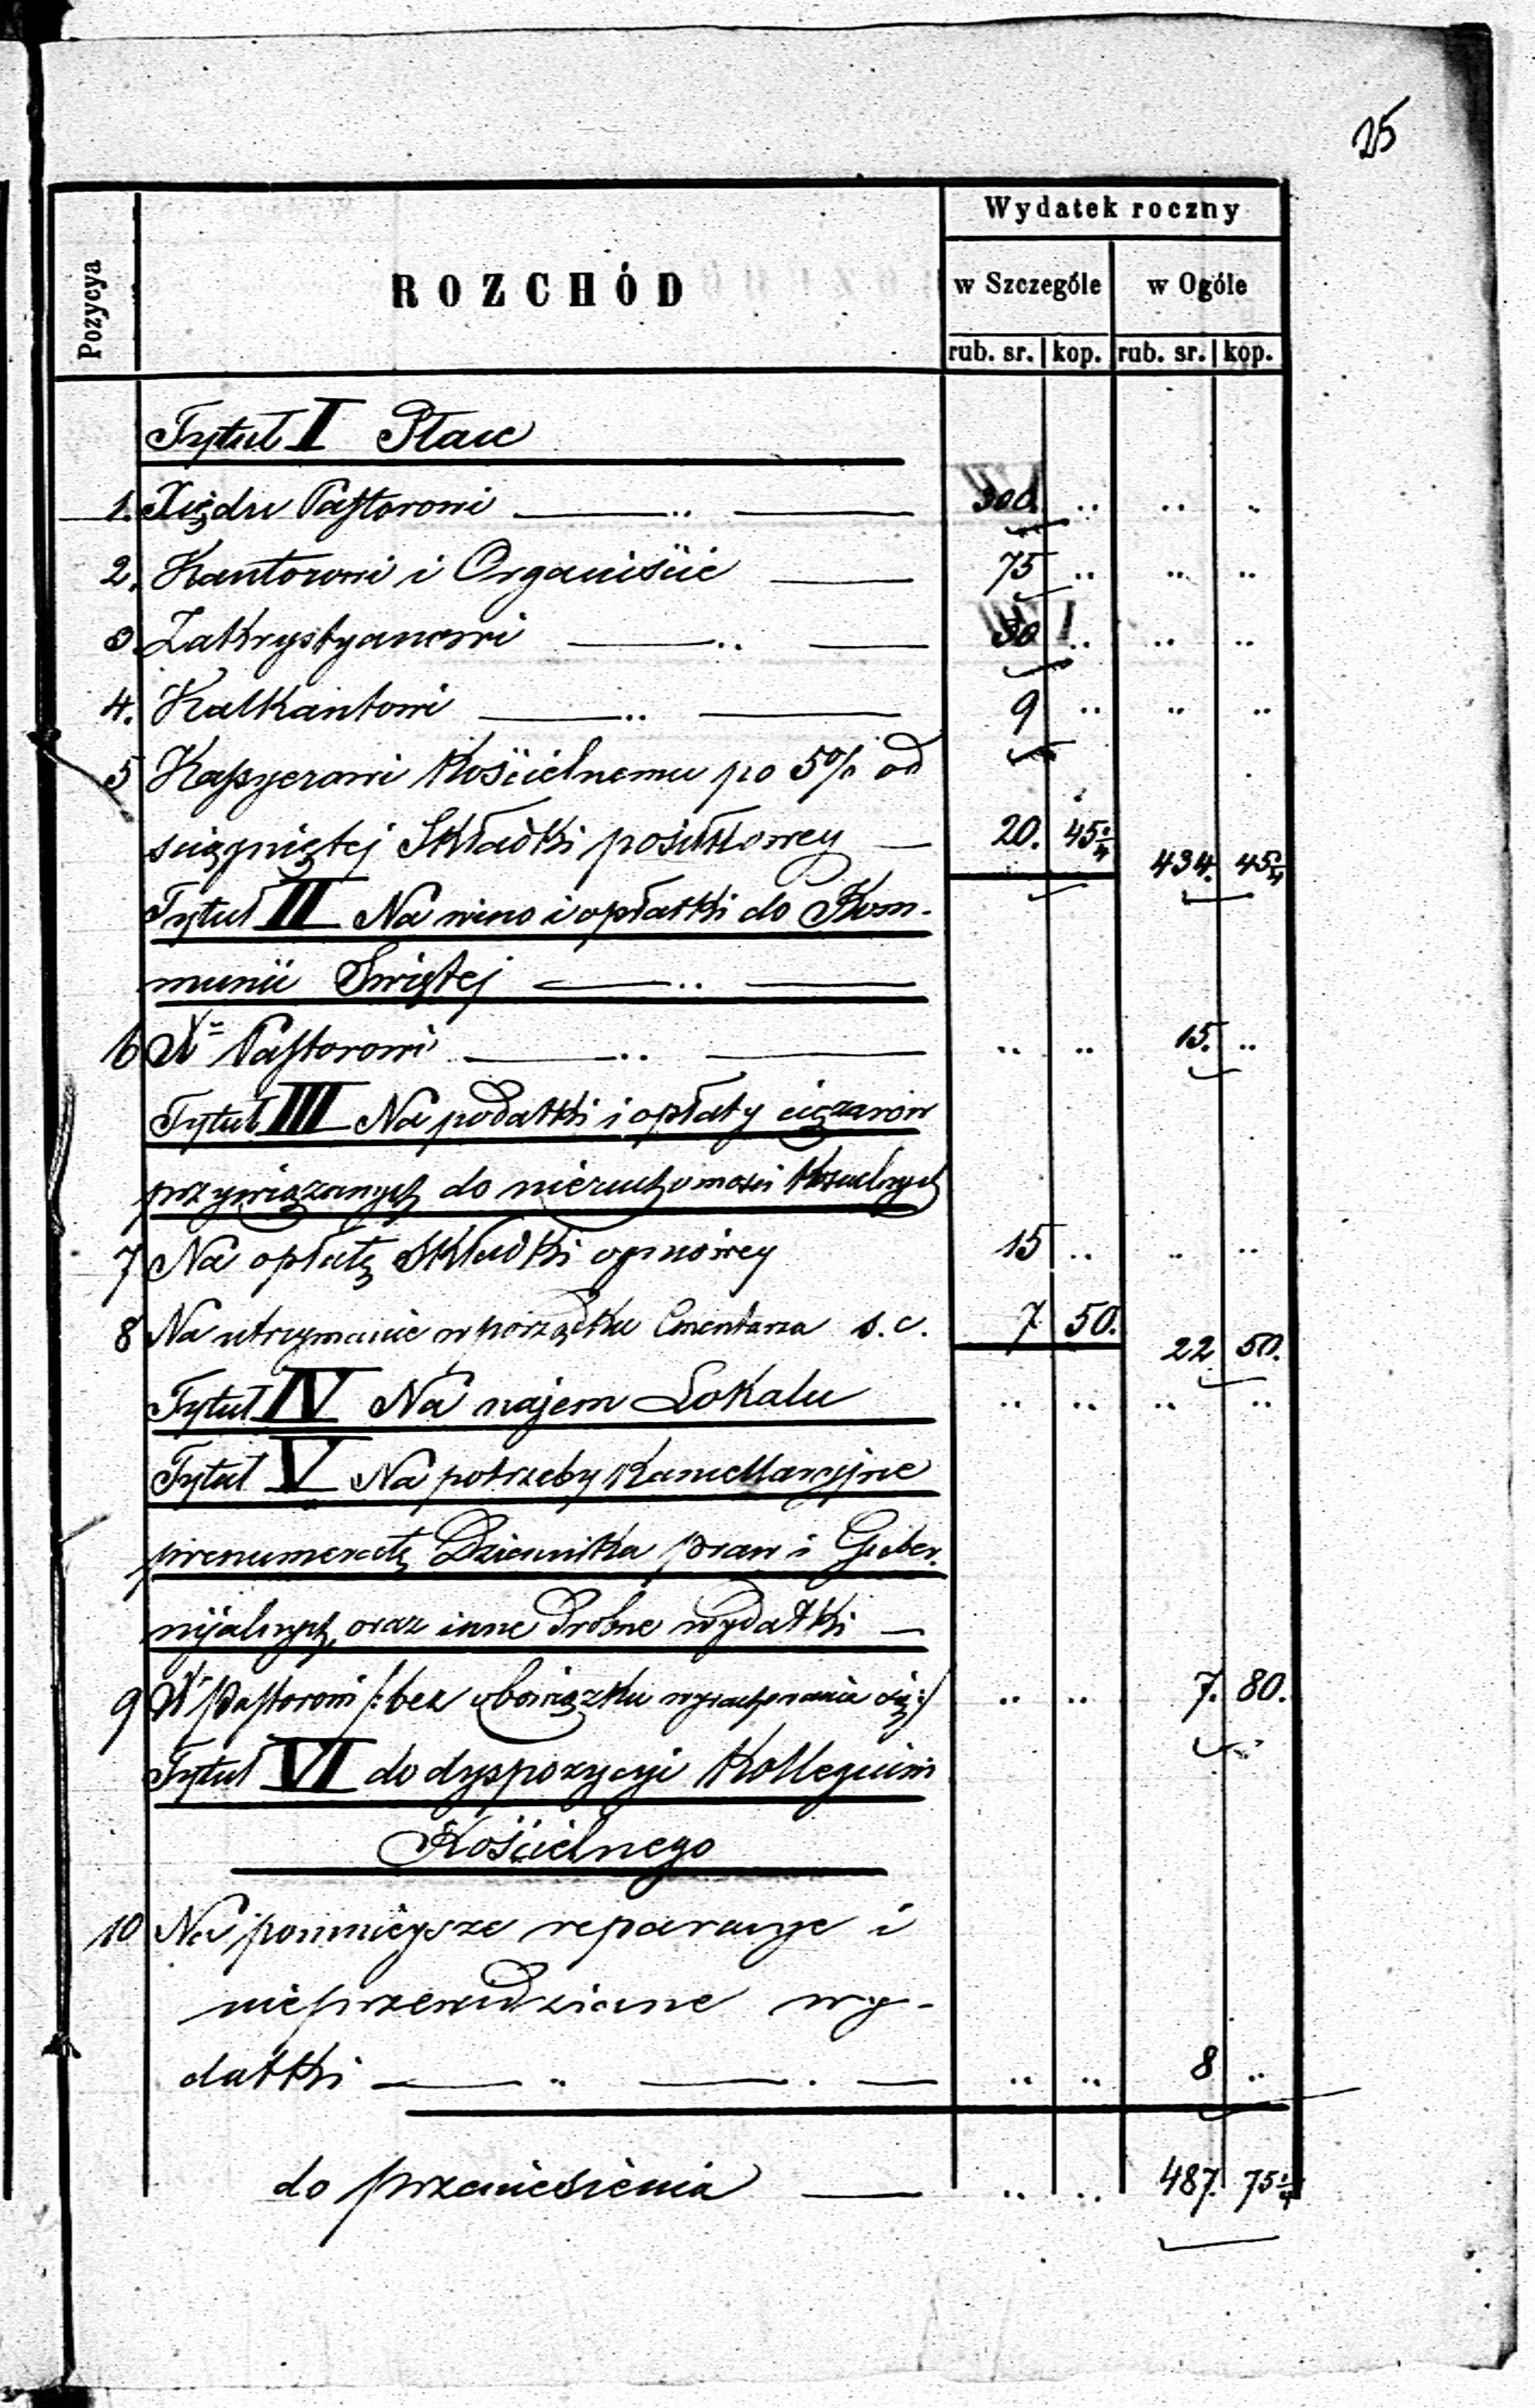 25
Wydatek roczny
Pozycya
ROZCHÓD
w Szczególe w Ogóle
rub. sr. kop. rub. sr. kop.
Tytuł I Płace
1. Xiędzu Pastorowi 300. .. .. ..
2. Kantorowi i Organiście 75 .. .. ..
3. Zakrystyanowi 30 .. .. ..
4. Kalkantowi 9 .. .. ..
5 Kassyerowi Kościelnemu po 5% od
sciągniętej Składki posiłkowey 20. 45 434. 45
Tytuł II Na wino i opłatki do Kom-
munii Swiętej
6 X= Pastorowi .. .. 15. ..
Tytuł III Na podatki i opłaty ciężarów
przywiązanych do nieruchomości Kościelnych
7 Na opłatę Składki ogniowey 15 .. .. ..
8 Na utrzymanie w porządku Cmentarza s.c. 7 50. 22 50.
Tytuł IV Na najem Lokalu .. .. .. ..
Tytuł V Na potrzeby Kancellaryjne
prenumeratę Dziennika praw i Guber-
nijalnych, oraz inne drobne wydatki
9 X= Pastorowi /: bez obowiązku wyrachowania się :/ .. .. 7. 80.
Tytuł VI do dyspozycyi Kollegium
Kościelnego
10 Na pomniejsze reparacye i
nieprzewidziane wy-
datki .. .. 8 ..
do przeniesienia .. .. 487. 75